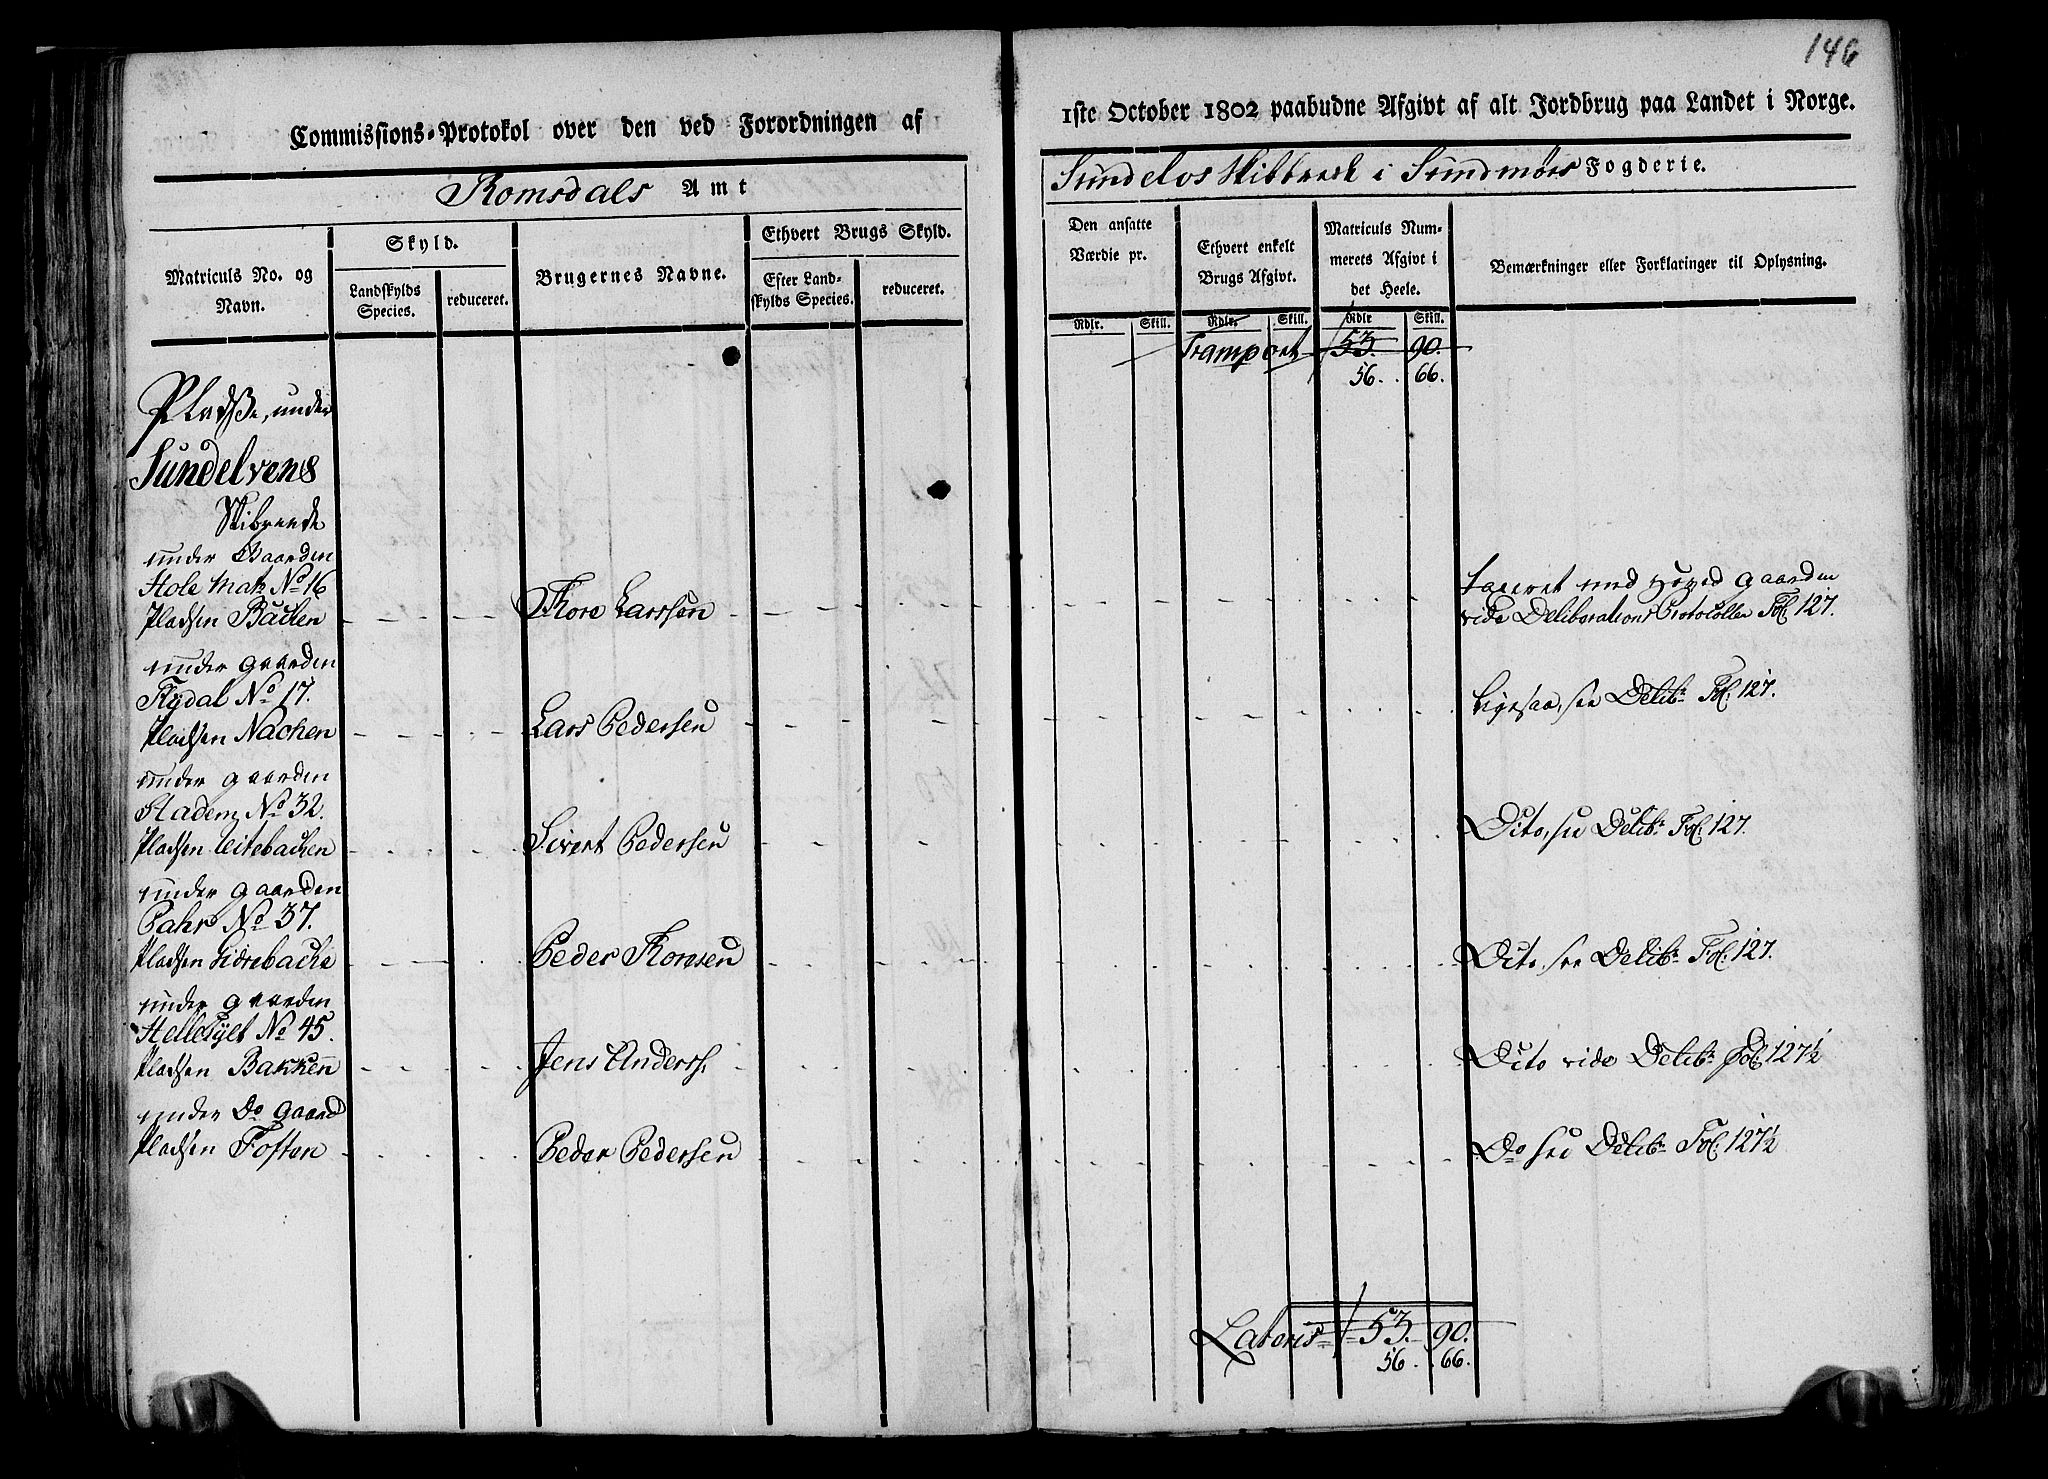 146
Commissions-Protokol over den ved Forordningen af
1ste October 1802 paabudne Afgivt af alt Jordbrug paa Landet i Norge.
Romsdals Amt
Sundelvs Skibbrede i Sundmørs Fogderie.
Matriculs No. og Navn.
Skyld.
Landskylds Species.
reduceret.
Brugernes Navne.
Ethvert Brugs Skyld.
Efter Landskylds Species.
reduceret.
Den ansatte Værdie pr.
Ethvert enkelt Brugs Afgivt.
Matriculs Nummerets Afgivt i det Heele.
Bemærkninger eller Forklaringer til Oplysning.
Rdlr. Skill. Rdlr. Skill. Rdlr Skill.
Transport 53. 90.
56. 66.
Pladse, under
Sundelvens
Skibrede
under Gaarden
Hole Matr No 16
Pladsen Bachen Thore Larssen Taxeret med Hoved gaarden
vide Deliberations Protocollen Fol. 127.
under gaarden
Rydal No 17.
Pladsen Nachen Lars Pedersen Ligesaa, see Delibr Fol. 127.
under gaarden
Stadem No 32.
Pladsen Leitebachen Sivert Pedersen Dito, see Delibr Fol. 127.
under gaarden
Pahr No 37.
Pladsen Lidrebache Peder Thoresen Dito, see Delibr Fol. 127.
under gaarden
Hellesylt No 45.
Pladsen Bakken Jens Anderss. Dito vide Delibr Fol. 127½
under Do Gaard
Pladsen Toften Peder Pedersen Do see Delibr Fol. 127½
Lateris 53. 90.
56. 66.